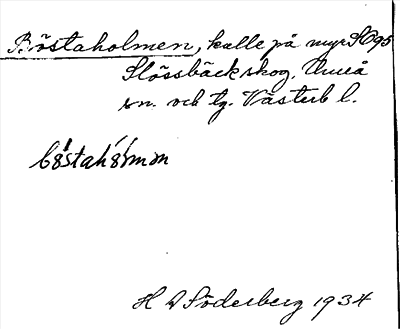 Böstaholmen, kalle på myr SO95
Slössbäck skog. Umeå
sn. och tg. Västerb l.
bö́stahó̀lmɘn
H D Söderberg 1934